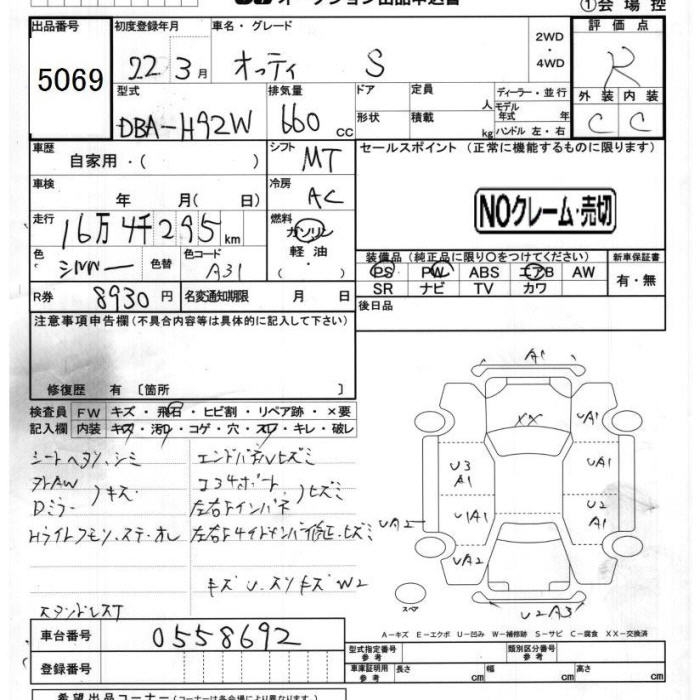 ①会場控
出品番号 初度登録年月 車名・グレード 評価点
5069 22年3月 オッティ S 2WD・4WD R
型式 排気量 ドア 定員 人 ディーラー・並行 外装 内装
DBA-H92W 660cc 形状 積載 kg モデル年式 年 ハンドル 左・右 C C
車歴 自家用・( ) シフト MT セールスポイント (正常に機能するものに限ります)
車検 年 月(日) 冷房 AC
NOクレーム・売切
走行 16万4千295km 燃料 ガソリン・軽油・( )
色 シルバー 色替 色コード A31
装備品(純正品に限り○をつけてください) 新車保証書
PS PW ABS エアB AW 有・無
SR ナビ TV カワ
R券 8930円 名変通知期限 月 日
後日品
注意事項申告欄(不具合内容等は具体的に記入して下さい)
修復歴 有 [箇所 ]
検査員 FW キズ・飛石・ヒビ割・リペア跡・×要
記入欄 内装 キズ・汚れ・コゲ・穴・スレ・キレ・破レ
シートヘタリ、シミ エンドパネルヒズミ
Dミラー キズ
スタンドレスT
キズU.スリキズW2
A1
XX
UA1
U3
A1
UA1
U1A1
U2
A1
UA2
UA2
U2A3
スペア
A-キズ E-エクボ U-凹み W-補修跡 S-サビ C-腐食 XX-交換済
車台番号 0558692
登録番号
型式指定番号 参考 類別区分番号 参考
車庫証明用 参考 長さ cm 幅 cm 高さ cm
希望出品コーナー(コーナーは各会場により異なります)